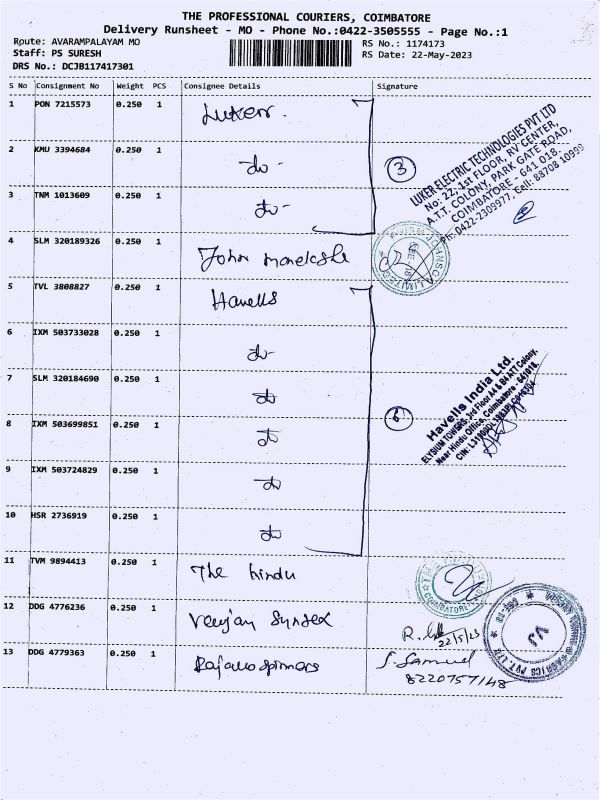 THE PROFESSIONAL COURIERS, COIMBATORE
Delivery Runsheet - MO - Phone No.:0422-3505555 - Page No.:1
Route: AVARAMPALAYAM MO RS No.: 1174173
Staff: PS SURESH RS Date: 22-May-2023
DRS No.: DCJB117417301
S No Consignment No Weight PCS Consignee Details Signature
1 PON 7215573 0.250 1 Luker
2 KMU 3394684 0.250 1 do -
3 TNM 1013609 0.250 1 do -
3
LUKER ELECTRIC TECHNOLOGIES PVT LTD
No: 22, 1st FLOOR, RV CENTER,
A.T.T. COLONY, PARK GATE ROAD,
COIMBATORE - 641 018.
Ph: 0422-2309977, Cell: 88708 10999
4 SLM 320189326 0.250 1 John
5 TVL 3808827 0.250 1 Havells
6 IXM 503733028 0.250 1 do -
7 SLM 320184690 0.250 1 do
8 IXM 503699851 0.250 1 do
9 IXM 503724829 0.250 1 do
10 HSR 2736919 0.250 1 do
6
Havells India Ltd.
ELYSIUM TOWERS, 3rd Floor A4 & B4 ATT Colony,
Near Hindu Office, Coimbatore - 641018.
11 TVM 9894413 0.250 1 The hindu
COIMBATORE
12 DDG 4776236 0.250 1
22/5/23
13 DDG 4779363 0.250 1
S. Samuel
8220757148